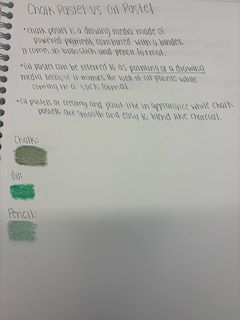 Chalk Pastel vs Oil Pastel
• Chalk pastel is a drawing media made of
powered pigment combined with a binder.
It comes in both stick and pencil format.
• Oil pastel can be referred to as painting or a drawing
media because it mimics the look of oil paints while
coming in a stick format.
• Oil pastels or creamy and paint like in appearance while chalk
pastels are smooth and easy to blend like charcoal.
Chalk:
Oil:
Pencil: